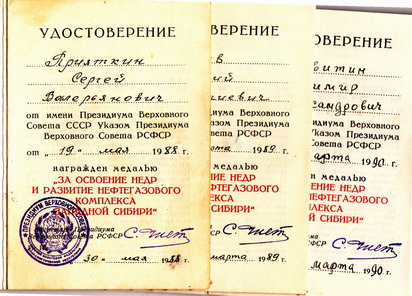 УДОСТОВЕРЕНИЕ
Прияткин
Сергей
Валерьянович
от имени Президиума Верховного
Совета СССР Указом Президиума
Верховного Совета РСФСР
от "19" мая 1988 г.
награжден медалью
„ЗА ОСВОЕНИЕ НЕДР
И РАЗВИТИЕ НЕФТЕГАЗОВОГО
КОМПЛЕКСА
ЗАПАДНОЙ СИБИРИ"
Президиума
Верховного Совета РСФСР
30 мая 1988 г.
ОВЕРЕНИЕ
в
ий
евич
идиума Верховного
азом Президиума
вета РСФСР
рта 1989 г.
медалью
НИЕ НЕДР
НЕФТЕГАЗОВОГО
ЕКСА
СИБИРИ"
марта 1989 г.
ОВЕРЕНИЕ
витин
имир
сандрович
Верховного
Президиума
РСФСР
марта 1990 г.
медалью
НЕДР
НЕФТЕГАЗОВОГО
КСА
ОЙ СИБИРИ"
марта 1990 г.